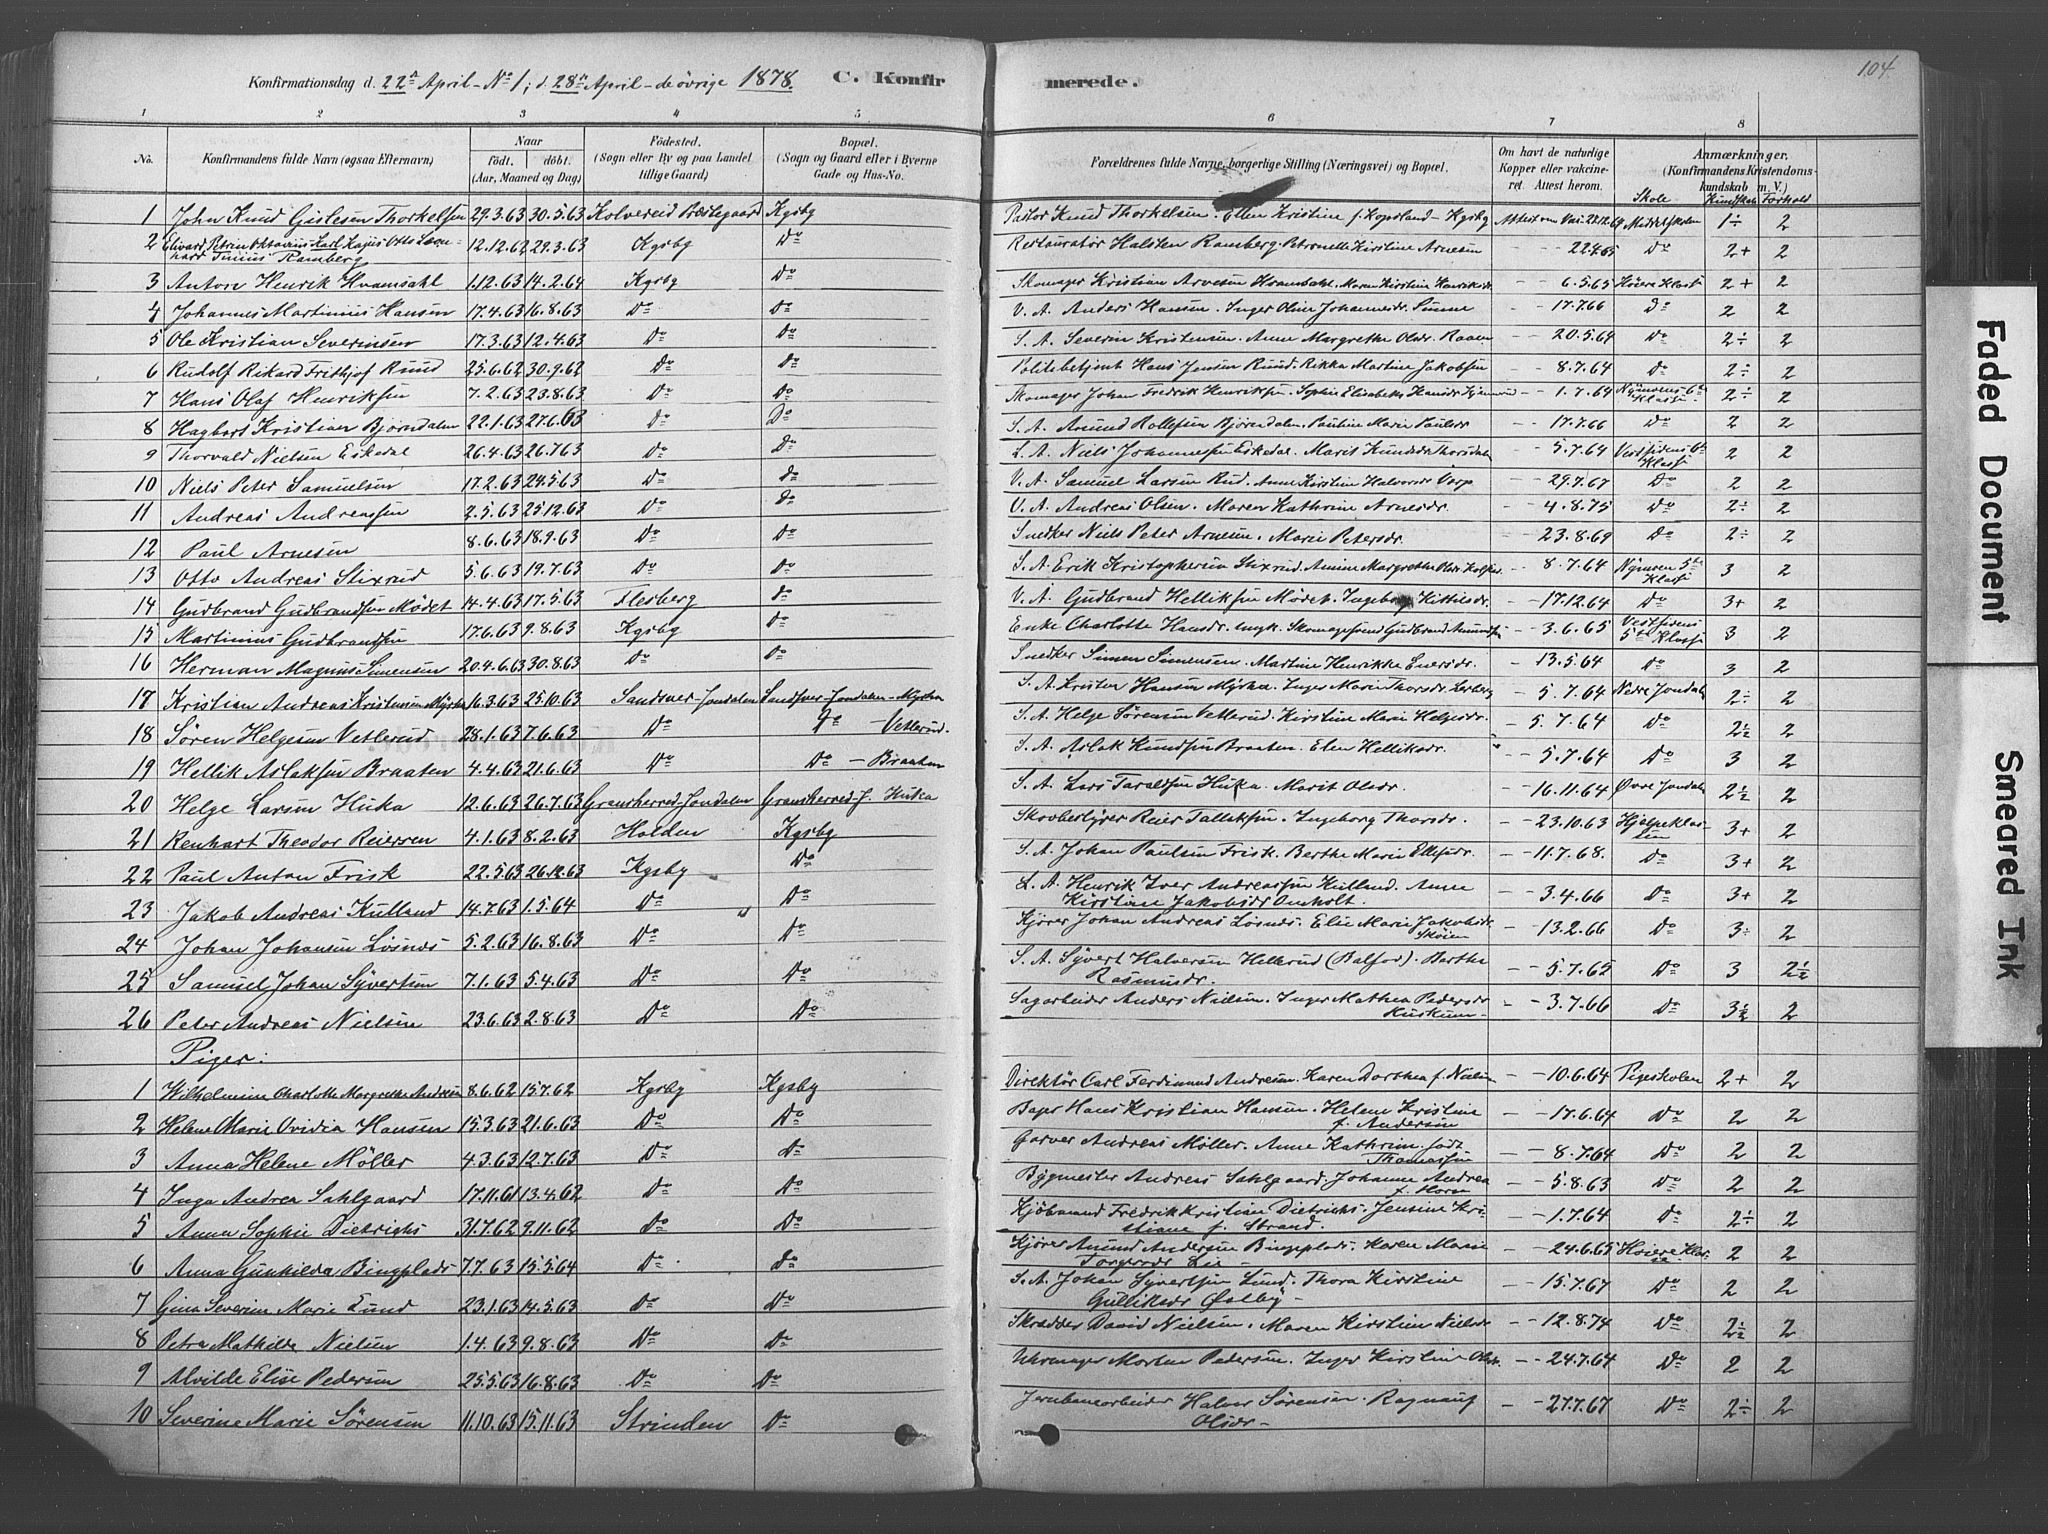 Konfirmationsdag d. 22de April - No 1; d. 28de April - de övrige 1878. C. Konfirmerede.
104.
1 2 3 4 5 6 7 8
No. Konfirmandens fulde Navn (ogsaa Efternavn) Naar födt. döbt. (Aar, Maaned og Dag) Födested. (Sogn eller By og paa Landet tillige Gaard) Bopæl. (Sogn og Gaard eller i Byerne Gade og Hus-No. Forældrenes fulde Navne, borgerlige Stilling (Næringsvei) og Bopæl. Om havt de naturlige Kopper eller vakcineret. Attest herom. Anmærkninger. (Konfirmandens Kristendomskundskab m. V.)
Skole Kundskab Forhold
1 John Knud Gislesen Thorkelsen 29.3.63 30.5.63 Kolvereid Prestegaard Kgsby Pastor Knud Thorkelsen. Ellen Kristine f. Kopsland - Kgsby Attest om Vac. 22.12.69 Middelskolen 1÷ 2
2 Edvard Petrin Oktavius Karl Kajus Otto Leonhard Tinius Ramberg 12.12.62 29.3.63 Kgsby Do Restauratør Halsten Ramberg. Petronelle Kirstine Arnesen - - 22.4.65 Do 2+ 2
3 Anton Henrik Hvamsahl 1.12.63 14.2.64 Kgsby Do Skomager Kristian Arvesen Hvamsahl. Maren Kirstine Henriksdr. - - 6.5.65 Høiere Klasse 2+ 2
4 Johannes Martinius Hansen 17.4.63 16.8.63 Do Do V. A. Anders Hansen. Inger Oline Johannesdr. - - 17.7.66 Do 2 2
5 Ole Kristian Severinsen 17.3.63 12.4.63 Do Do S. A. Severin Kristensen. Anne Margrethe Olsdr. Raaen - - 20.5.64 Do 2÷ 2
6 Rudolf Rikard Frithjof Ruud 25.6.62 30.9.62 Do Do Politibetjent Hans Jensen Ruud. Rikka Martine Jakobsen - - 8.7.64 Do 2÷ 2
7 Hans Olaf Henriksen 7.2.63 23.8.63 Do Do Skomager Johan Fredrik Henriksen. Sophie Elisabeth Hansdr. - - 1.7.64 Nymoens 6te Klasse 2÷ 2
8 Hagbart Kristian Bjørndalen 22.1.63 27.6.63 Do Do S. A. Amund Rollefsen Bjørndalen. Pauline Marie Paulsdr. - - 17.7.66 Do 2 2
9 Thorvald Nielsen Eskedal 26.4.63 26.7.63 Do Do S. A. Niels Johannesen Eskedal. Marit Knudsdr. Thorsdalen - 5.7.64 Vestsidens 6te Klasse 2 2
10 Niels Peter Samuelsen 17.2.63 24.5.63 Do Do V. A. Samuel Larsen Rud. Anne Kirstine Halvorsdr. Varp - - 29.7.67 Do 2 2
11 Andreas Andreassen 2.5.63 25.12.63 Do Do V. A. Andreas Olsen. Maren Kathrine Arnesdr. - - 4.8.75 Do 2÷ 2
12 Paul Arnesen 8.6.63 18.9.63 Do Do Snedker Niels Peter Arnesen. Marie Petersdr. - - 23.8.69 Do 2÷ 2
13 Otto Andreas Stixrud 5.6.63 19.7.63 Do Do S. A. Erik Kristophersen Stixrud. Amine Margrethe Olsdr. - 8.7.64 Nymoen 5te Klasse 3 2
14 Gudbrand Gudbrandsen Mødet 14.4.63 17.5.63 Flesberg Do V. A. Gudbrand Helliksen Mødet. Ingeborg Kittilsdr. - 17.12.64 Do 3+ 2
15 Martinius Gudbrandsen 17.6.63 9.8.63 Kgsby Do Enke Charlotte Hansdr. Skomagersvend Gudbrand Amundsen - 3.6.65 Vestsidens 5te Klasse 3 2
16 Herman Magnus Simensen 20.4.63 30.8.63 Do Do Snedker Simen Simensen. Martine Henrikke Enersdr. - 13.5.64 Do 3 2
17 Kristian Andreas Kristensen Myrha 16.3.63 25.10.63 Sandsver-Jondalen Sandsver-Jondalen-Myrha S. A. Kristen Hansen Myrha. Inger Marie Thorsdr. Lerberg - 5.7.64 Nedre Jondalen 2÷ 2
18 Søren Helgesen Vetlerud 28.1.63 7.6.63 Do Do - Vetlerud. S. A. Helge Sørensen Vetlerud. Kirstine Marie Helgesdr. - 5.7.64 Do 2½ 2
19 Hellik Aslaksen Braaten 4.4.63 21.6.63 Do Do - Braaten S. A. Aslak Knudsen Braaten. Elen Helliksdr. - 5.7.64 Do 3 2
20 Helge Larsen Huka 12.6.63 26.7.63 Gransherred-Jondalen Gransherred-J. Huka S. A. Lars Taraldsen Huka. Marit Olsdr. - 16.11.64 Øvre Jondalen 2½ 2
21 Renhart Theodor Reiersen 4.1.63 8.2.63 Holden Kgsby Skovbetjrer Reier Tallefsen. Ingeborg Thorsdr. - 23.10.63 Hjelpeklassen 3+ 2
22 Paul Anton Frisk 22.5.63 26.12.63 Kgsby Do S. A. Johan Paulsen Frisk. Berthe Marie Ellefsdr. - 11.7.68. Do 3+ 2
23 Jakob Andreas Kulland 14.7.63 1.5.64 Do Do L. A. Henrik Iver Andreassen Kulland. Anne Kirstine Jakobsdr. Omholt. - 3.4.66 Do 3+ 2
24 Johan Johansen Løsnes 5.2.63 16.8.63 Do Do Kjører Johan Andreas Løsnes. Elie Marie Jakobsdr. Skøien - 13.2.66 Do 3÷ 2
25 Samuel Johan Syversen 7.1.63 5.4.63 Do Do S. A. Syvert Halversen Hellerud (Balfor). Berthe Rasmusdr. - - 5.7.65 Do 3 2½
26 Peter Andreas Nielsen 23.6.63 2.8.63 Do Do Sagarbeider Anders Nielsen. Inger Mathea Pedersdr. - - 3.7.66 Do 3½ 2
Piger:
1 Wilhelmine Charlotte Margrethe Andresen 8.6.62 15.7.62 Kgsby Kgsby Direktör Carl Ferdinand Andresen. Karen Dorthea f. Nielsen - - 10.6.64 Pigeskolen 2+ 2
2 Helene Marie Ovidia Hansen 15.3.63 21.6.63 Do Do Bager Hans Kristian Hansen. Helene Kristine f. Andersen - - 17.6.64 Do 2 2
3 Anna Helene Møller 4.3.63 12.7.63 Do Do Garver Andreas Møller. Anne Kathrine født Thomassen - - 8.7.64 Do 2 2
4 Inga Andrea Sahlgaard 17.11.61 13.4.62 Do Do Bygmester Andreas Sahlgaard. Johanne Andrea f. Horn - - 5.8.63 Do 2 2
5 Anna Sophie Dietrichs 31.7.62 9.11.62 Do Do Kjöbmand Fredrik Kristian Dietrichs. Jensine Kristiane f. Strand. - - 1.7.64 Do 2÷ 2
6 Anna Gunhilda Bingplads 7.7.63 15.5.64 Do Do Kjører Amund Andersen Bingplads. Karen Marie Torgersdr. Lie - - - 24.6.65 Høiere Klasse 2 2
7 Gina Severine Marie Lund 23.1.63 14.5.63 Do Do S. A. Johan Syvertsen Lund. Thora Kirstine Gulliksdr. Østby - - - 15.7.67 Do 2 2
8 Petra Mathilde Nielsen 1.4.63 9.8.63 Do Do Skrædder David Nielsen. Maren Kirstine Nielsdr. - - 12.8.74 Do 2½ 2
9 Alvilde Elise Pedersen 25.5.63 16.8.63 Do Do Uhrmager Morten Pedersen. Inger Kirstine Olsdr. - - 24.7.64 Do 2 2
10 Severine Marie Sørensen 11.10.63 15.11.63 Strinden Do Jernbanearbeider Halvor Sørensen. Ragnauf Olsdr. - - - 27.7.67 Do 2÷ 2
Faded Document
Smeared Ink